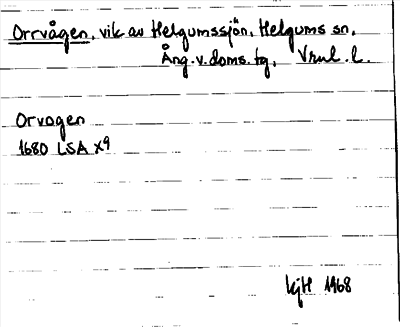 Orrvågen, vik av Helgumssjön, Helgums sn,
Ång. v. doms. tg, Vrnl. l.
Orvagen
1680 LSA X9
kjH 1968